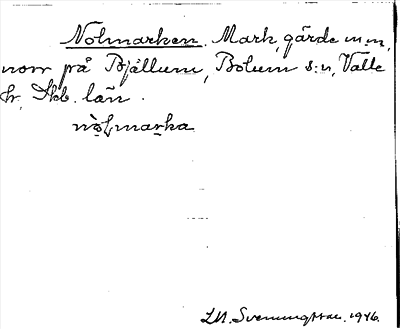 Nolmarken. Mark, gärde m.m.,
norr på Bjällum, Bolum s:n, Valle
h., Skb. län.
nò̱ɫmarka
L.M. Svenungsson. 1946.